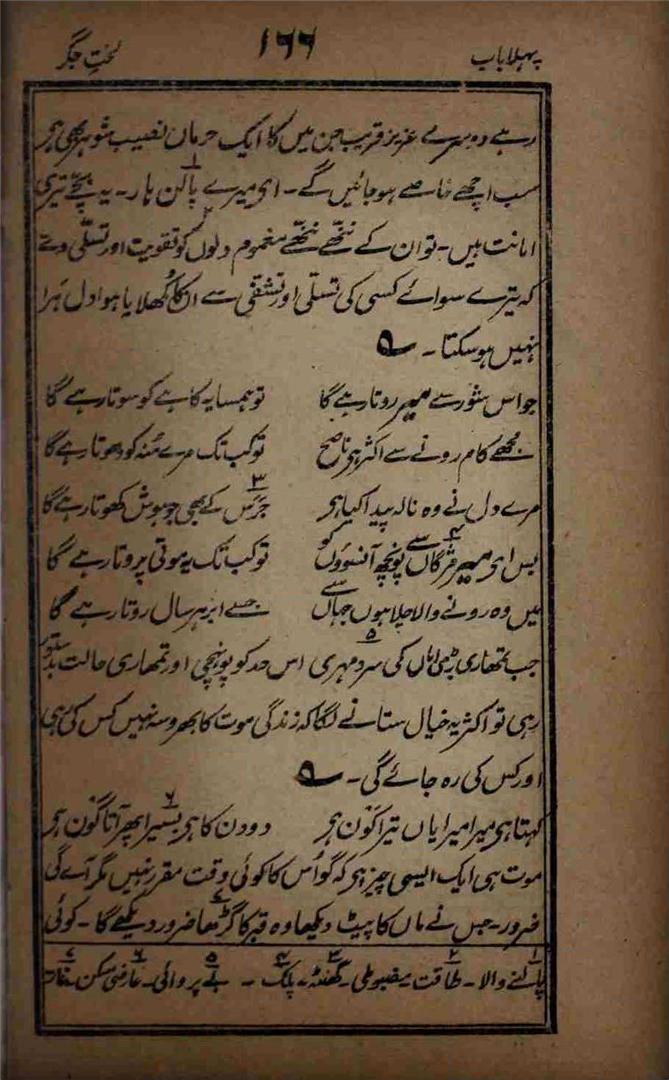 پہلا باب ۱۶۶ لختِ جگر
رہے دوسرے عزیز قریب جن میں کا ایک حرمان نصیب شوہر بھی ہی
سب اچھے خاصے ہو جائیں گے۔ ای میرے پالن ہار۔ یہ بچے تیری
امانت ہیں۔ تو ان کے ننھے ننھے مغموم دلوں کو تقویت اور تسلی دے
کہ تیرے سوائے کسی کی تسلی اور تشفی سے ان کا کُھلایا ہوا دل ہرا
نہیں ہو سکتا۔ ؎
جو اس شور سے میر روتا رہے گا تو ہمسایہ کاہے کو سوتا رہے گا
مجھے کام رونے سے اکثر ہی ناصح تو کب تک مرے مُنہ کو دھوتا رہے گا
مرے دل نے وہ نالہ پیدا کیا ہی جرس ۳ کے بھی جو ہوش کھوتا رہے گا
بس ای میر مژگاں ۴ سے پونچھ آنسوؤں کو تو کب تک یہ موتی پروتا رہے گا
میں وہ رونے والا چلا ہوں جہاں سے جسے ابر ہر سال روتا رہے گا
جب تمھاری بڑی اماں کی سرد مہری ۵ اس حد کو پونہچی اور تمھاری حالت بدستور
رہی تو اکثر یہ خیال ستانے لگا کہ زندگی موت کا بھروسہ نہیں کس کی رہی
اور کس کی رہ جائے گی۔ ؎
کہتا ہی میرا میرا یاں تیرا کون ہی دو دن کا ہی بسیرا ۶ پھر آتا کون ہی
موت ہی ایک ایسی چیز ہی کہ گو اُس کا کوئی وقت مقرر نہیں مگر آے گی
ضرور۔ جس نے ماں کا پیٹ دیکھا وہ قبر کا گڑھا ۷ ضرور دیکھے گا۔ کوئی
۱ پالنے والا۔ ۲ طاقت مضبوطی۔ ۳ گھنٹہ۔ ۴ پلک۔ ۵ بے پروائی۔ ۶ عارضی مسکن۔ ۷